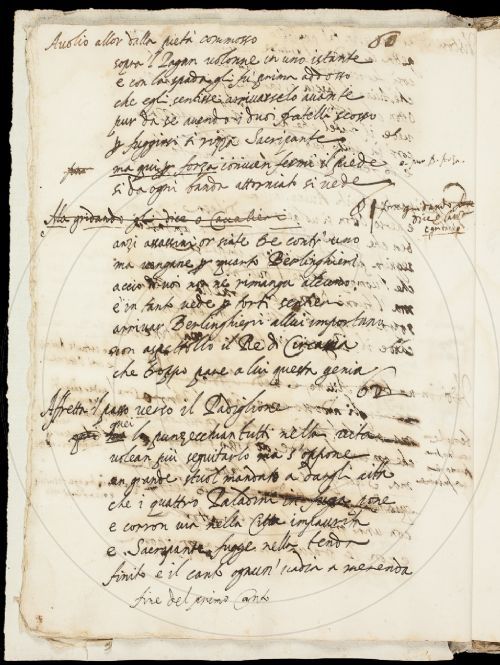 60
Avolio allor dalla pietà commosso
sopra 'l Pagan volonne in uno istante
e con la spada gli fu prima addosso
che egli sentisse arrivarselo avante
pur da se avendo i duoi fratelli scosso
p fuggirsi si rizza Sacripante
ma qui p forza convien fermi il piede
si da ogni banda attorniato si vede
Ma gridando dice o Cavalier
anzi assassini or siate tre contr' uno
ma vengane p quarto Berlinghieri
acciò di voi non ne rimanga alcuno
e in tanto vede p forti sentieri
arrivar Berlinghieri importuno
non aspettollo il Re di Circassia
che troppo pare a lui questa genia
62
Affretta 'l passo verso il Padiglione
quei lo punzecchian tutti nella
volean più seguitarlo ma s'oppone
un grande stuol mandato a dargli aita
che i quattro Paladini in fuga pone
e corron via nella Città
e Sacripante fugge nella tenda
finito è il canto ognun' vada a merenda
fine del primo Canto